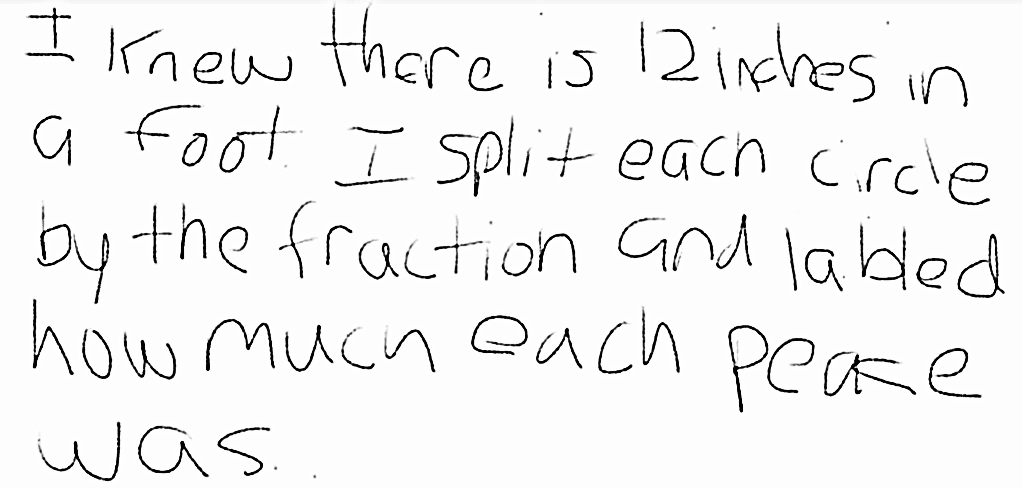 I knew there is 12 inches in
a foot. I split each circle
by the fraction and labled
how much each peace
was.